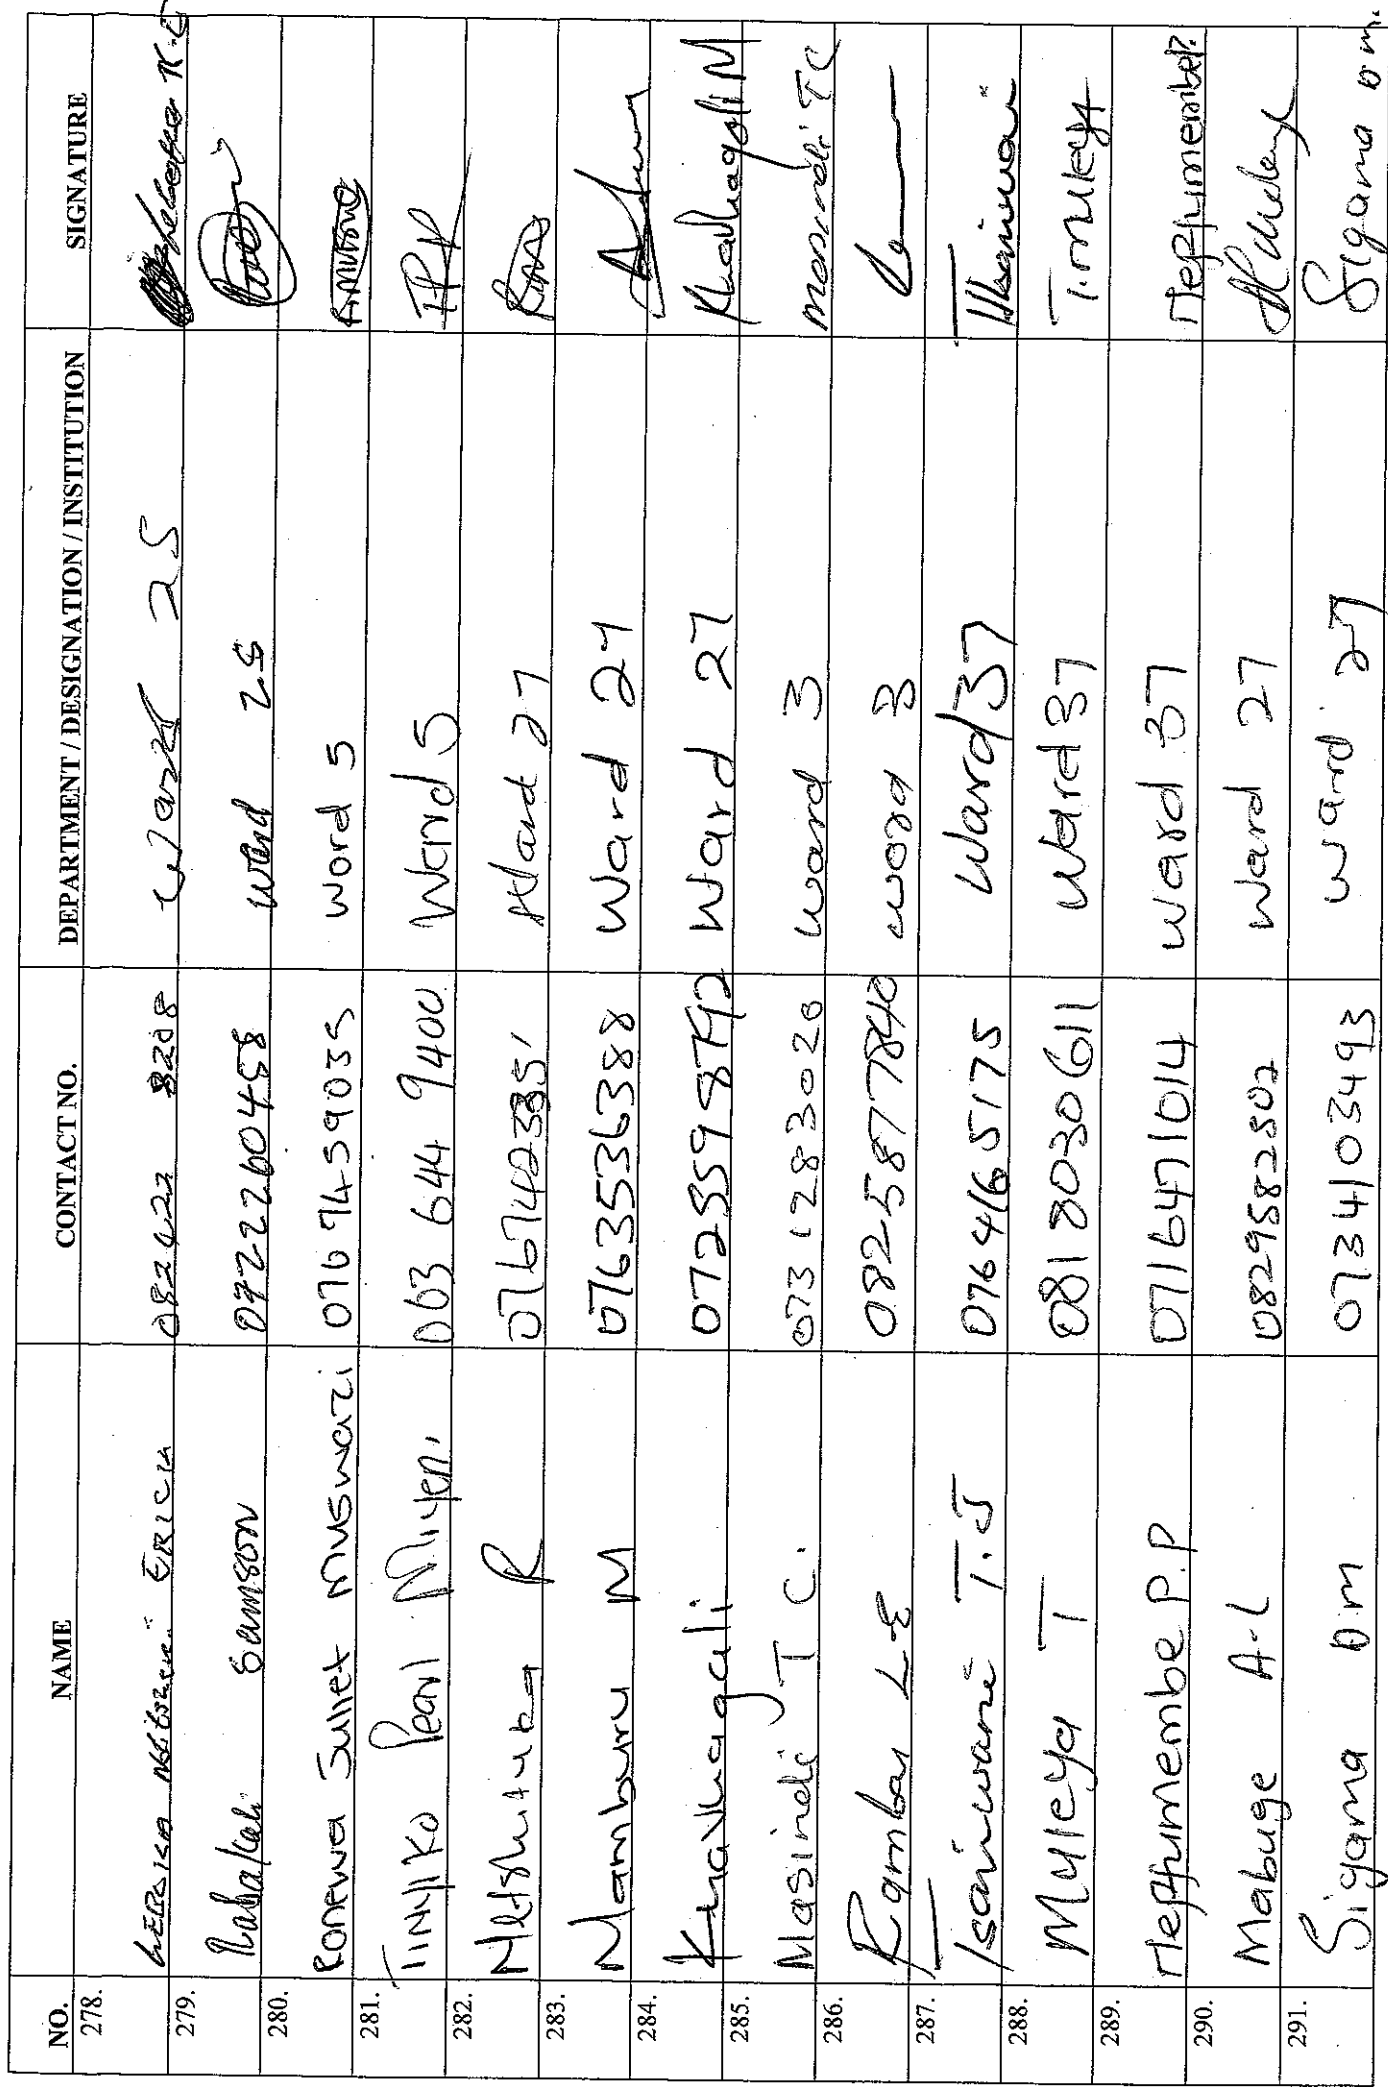 NO. NAME CONTACT NO. DEPARTMENT / DESIGNATION / INSTITUTION SIGNATURE
278. ERICK 082422 8208 Ward 25
279. Samson 0722260458 Ward 25
280. Ronewa Juliet Muswazi 0767459035 Word 5
281. TINYIKO Pearl Miyeni 063 644 9400 Ward 5
282. R Ward 27
283. Mamburu M 0763536388 Ward 27
284. Khavhagali Ward 27 Khavhagali M
285. Masindi T C. 073 128 3020 Ward 3 Masindi TC
286. Rambau L.E 0825877840 word 3
287. Tsaniwani T.J 0764165175 Ward 37
288. Muleya T 081 8030611 Ward 37 T. muleya
289. Nephumembe P.P 0716471014 Ward 37 Nephumembe P.
290. Mabuge A.L 0829582502 Ward 27
291. Sigama D.m 0734103493 Ward 27 Sigama D m.